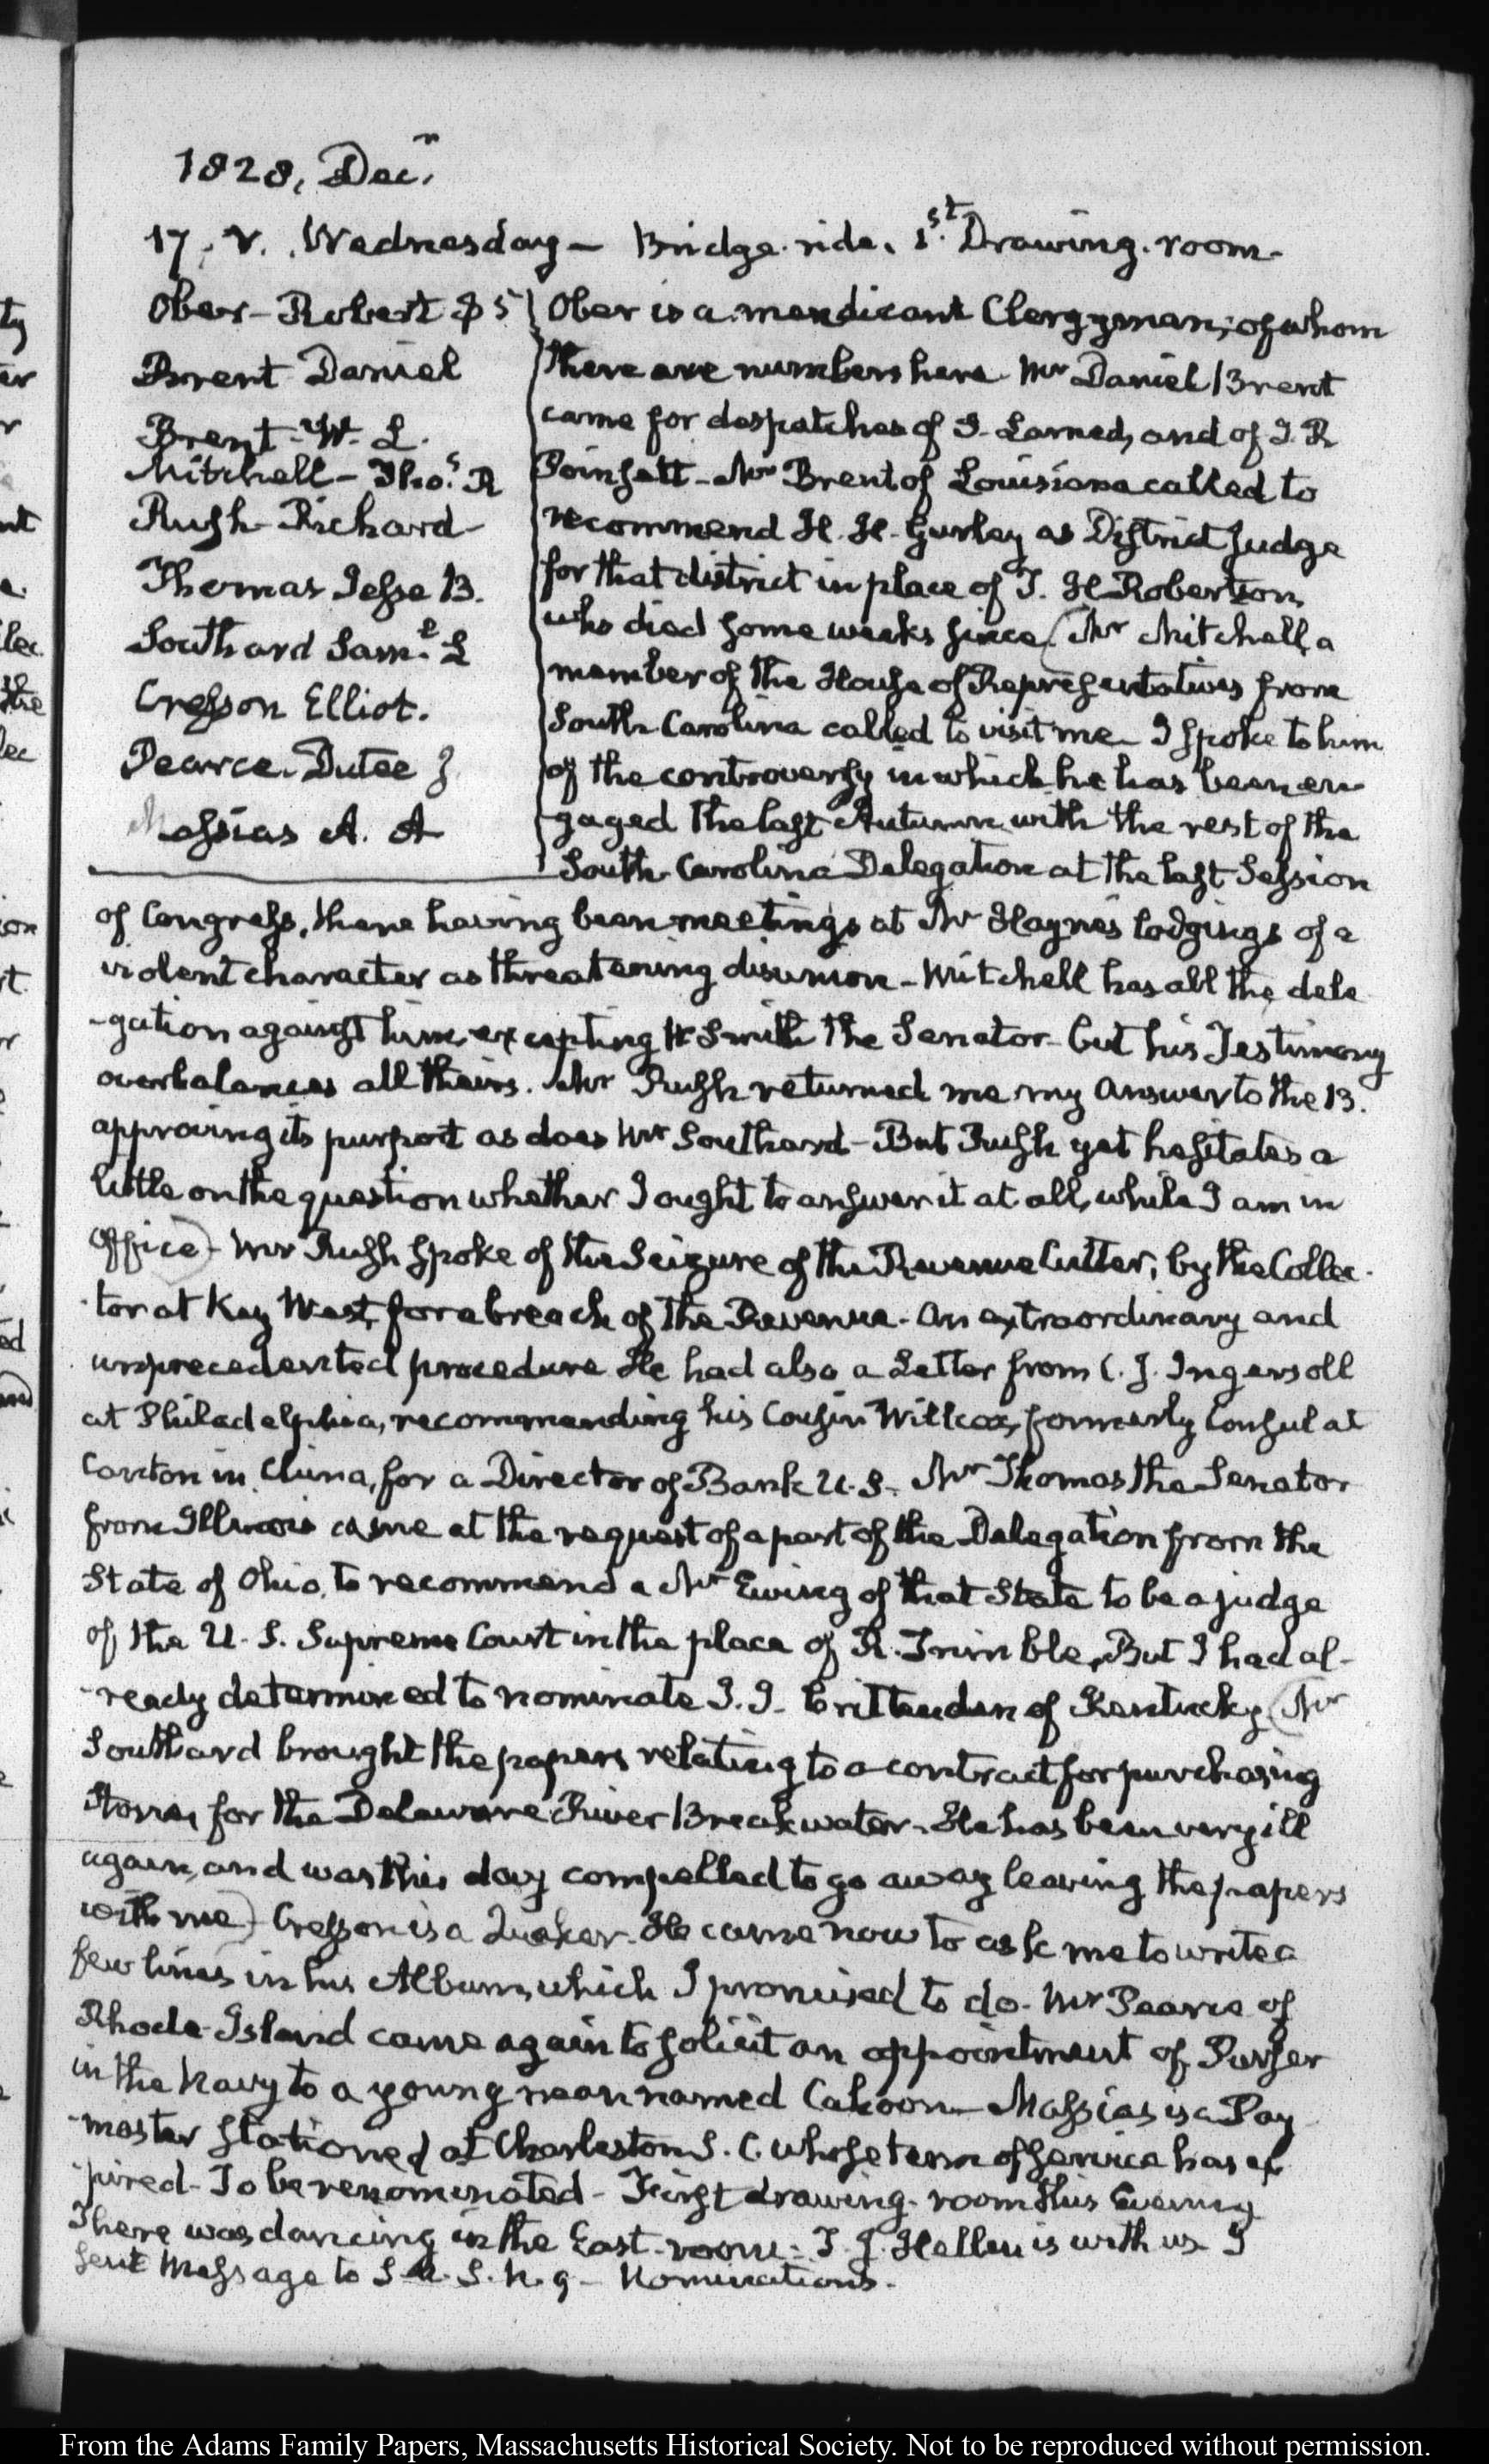 1828, Decr.
17. V. Wednesday — Bridge ride. 1st. Drawing-room.
Ober — Robert $5
Brent Daniel
Brent — W. L.
Mitchell — Tho.s R
Rush Richard
Thomas Jesse B.
Southard Sam.l L
Cresson Elliot.
Pearce. Dutee J.
Massias A. A
Ober is a mendicant Clergyman; of whom
there are numbers here. Mr Daniel Brent
came for despatches of S. Larned, and of J. R
Poinsett — Mr Brent of Louisiana called to
recommend H. H. Gurley as District Judge
for that district in place of T. H Robertson,
who died some weeks since (Mr Mitchell, a
member of the House of Representatives from
South Carolina called to visit me — I spoke to him
of the controversy in which he has been en
gaged the last Autumn with the rest of the
South-Carolina Delegation at the last Session
of Congress, there having been meetings at Mr Hayne's lodgings of a
violent character as threatening disunion — Mitchell has all the dele
-gation against him, excepting W Smith the Senator — but his Testimony
overbalances all theirs. Mr Rush returned me my answer to the 13.
approving its purport as does Mr Southard — But Rush yet hesitates a
little on the question whether I ought to answer it at all, while I am in
Office) — Mr Rush spoke of the Seizure of the Revenue Cutter, by the Collec-
-tor at Key West, for a breach of the Revenue — An extraordinary and
unprecedented procedure He had also a Letter from C. J. Ingersoll
at Philadelphia, recommending his Cousin Willcox, formerly Consul at
Canton in China, for a Director of Bank U.S. Mr Thomas the Senator
from Illinois came at the request of a part of the Delegation from the
State of Ohio, to recommend a Mr Ewing of that State to be a judge
of the U. S. Supreme Court in the place of R. Trimble, But I had al-
-ready determined to nominate J. J. Crittenden of Kentucky (Mr
Southard brought the papers relating to a contract for purchasing
stones for the Delaware River Breakwater. He has been very ill
again, and was this day compelled to go away leaving the papers
with me) — Cresson is a Quaker. He came now to ask me to write a
few lines in his Album, which I promised to do. Mr Pearce of
Rhode-Island came again to solicit an appointment of Purser
in the Navy to a young man named Cahoon — Massias is a Pay
-master stationed at Charleston S. C. whose term of service has ex
-pired — To be renominated — First drawing-room this Evening
There was dancing in the East-room. T. J. Hellen is with us I
sent Message to S. U. S. N. 9 — Nominations.
From the Adams Family Papers, Massachusetts Historical Society. Not to be reproduced without permission.